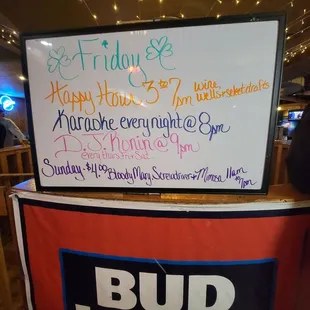 Friday
Happy Hour 3 to 7pm wine, wells & select drafts
Karaoke every night @ 8pm
D.J. Ronin @ 9pm
every thurs Fri & Sat
Sunday - $4.00 Bloody Mary, Screwdriver & Mimosa 11am to 7pm
BUD